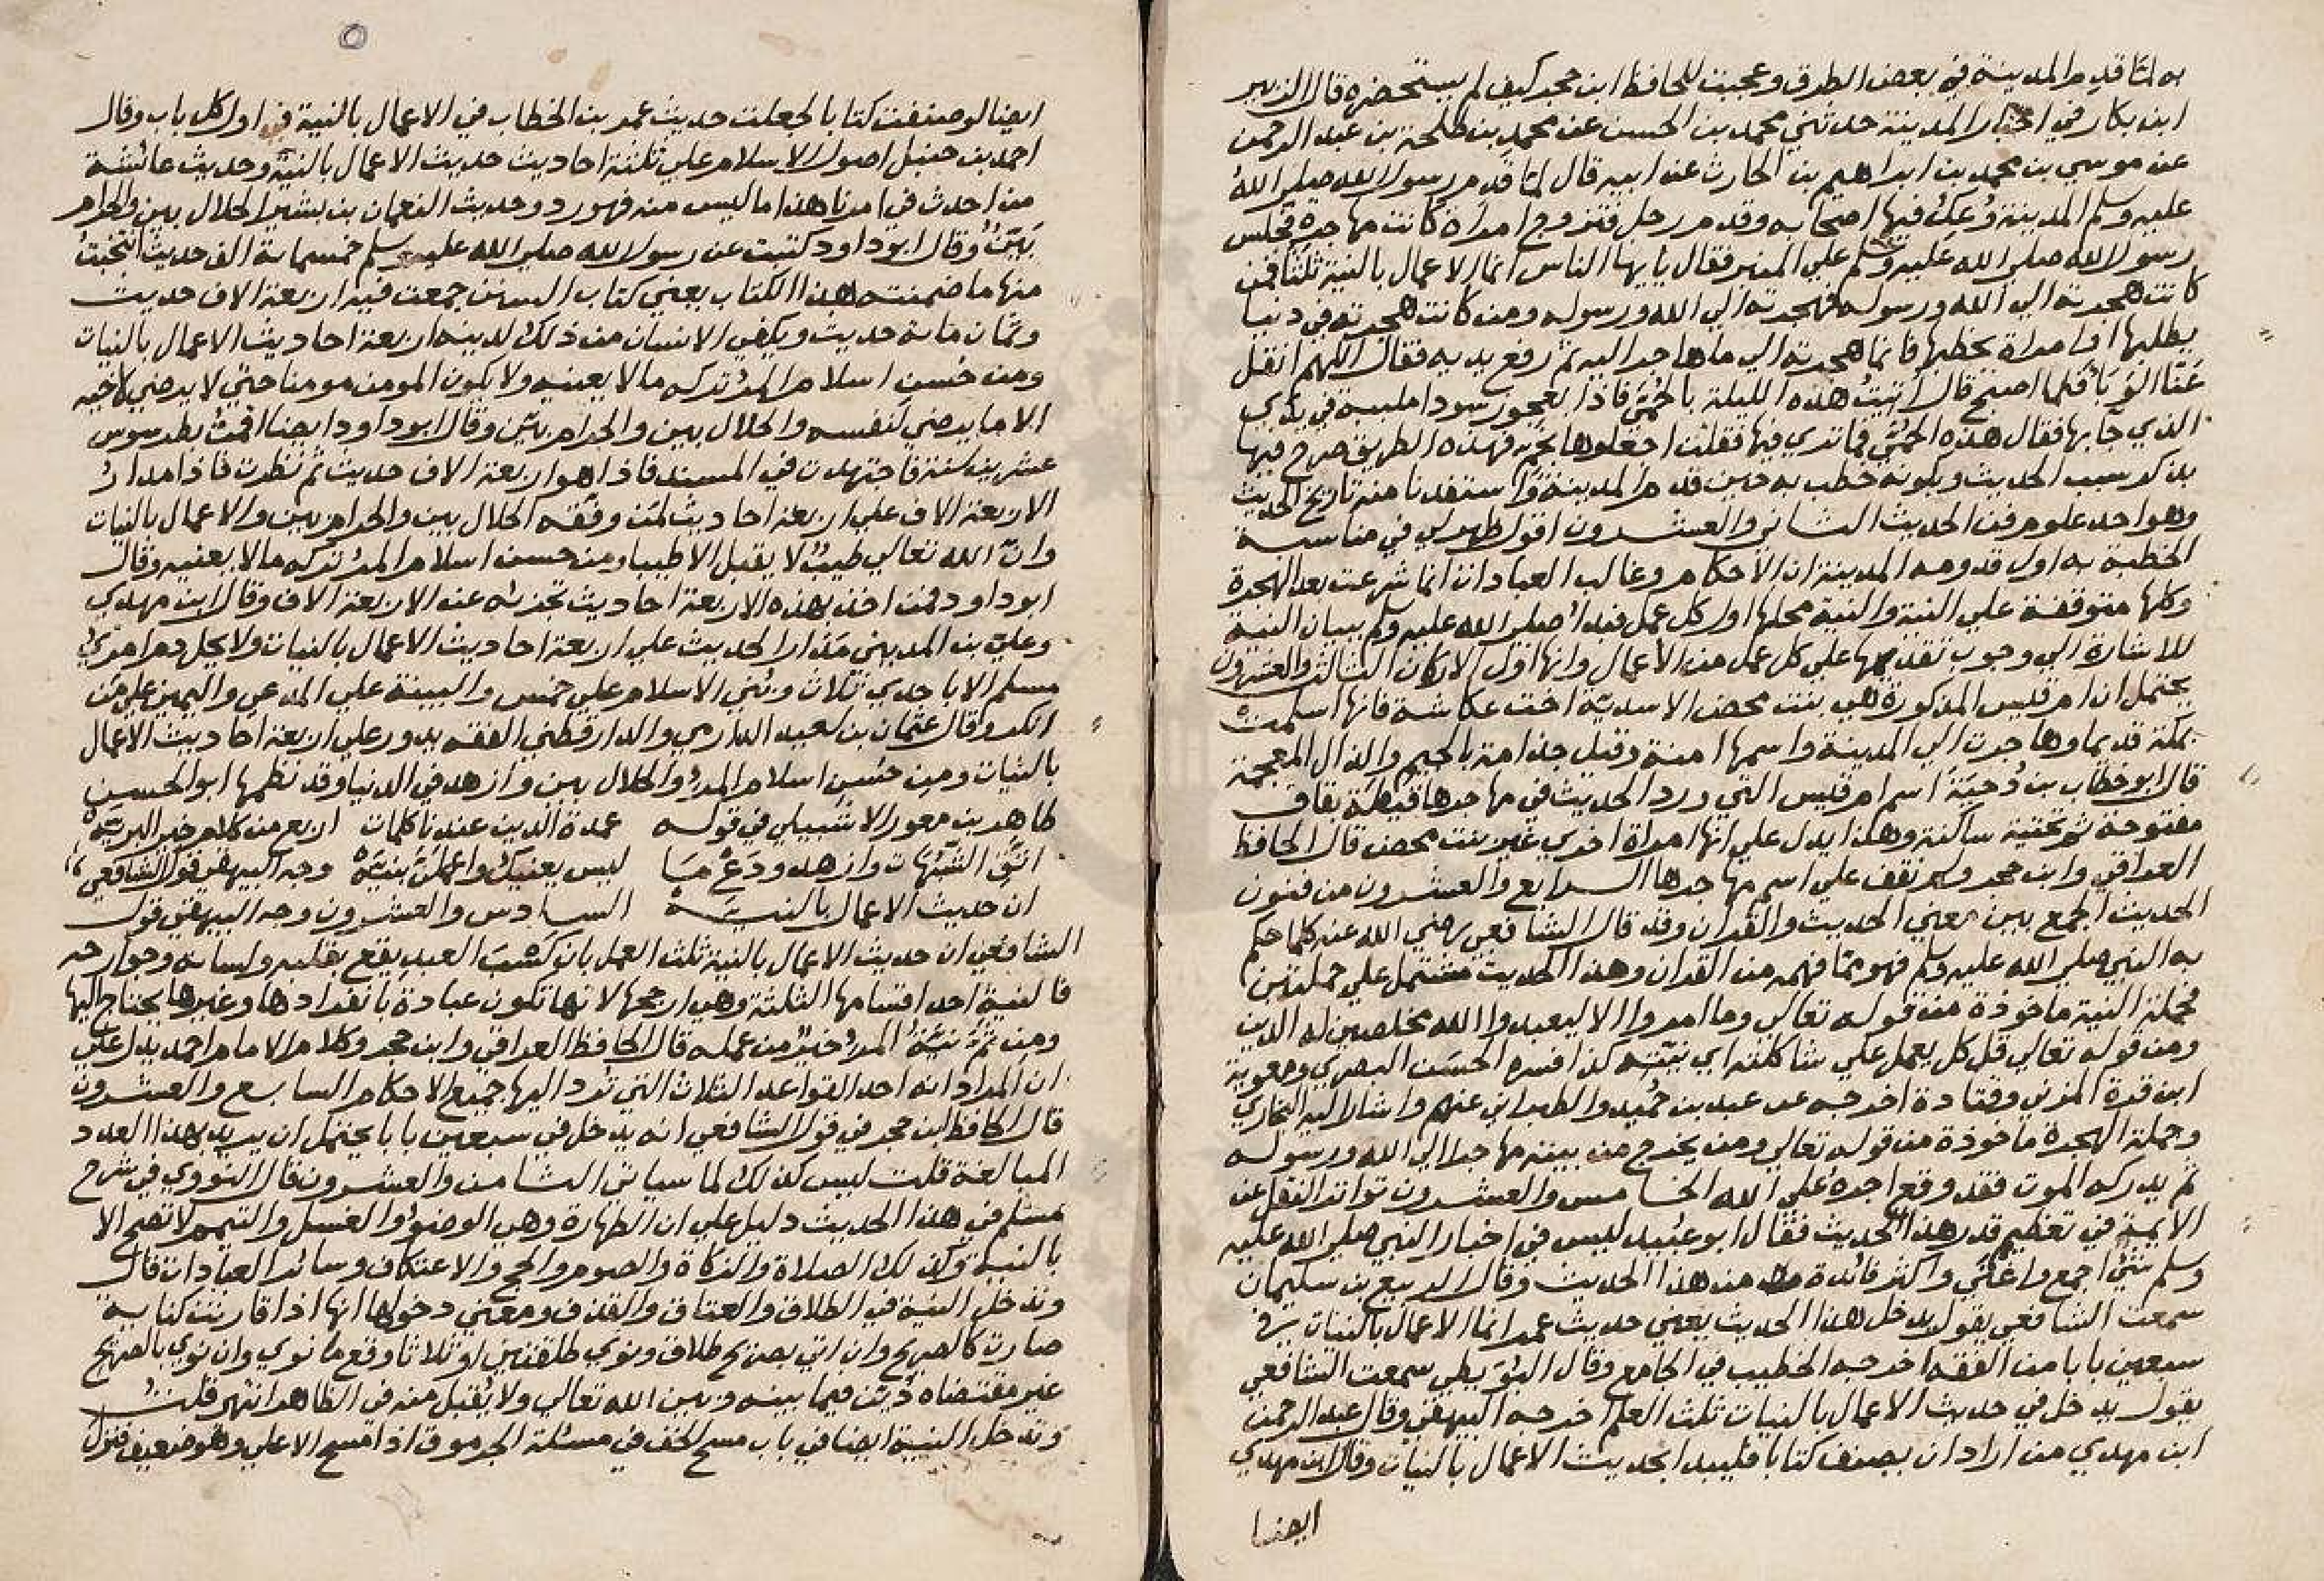 به لما قدم المدينة في بعض الطرق وعجبت للحافظ ابن حجر كيف لم يستحضره قال الزبير
ابن بكار في اخبار المدينة حدثني محمد بن الحسن عن محمد بن طلحة بن عبد الرحمن
عن موسي بن محمد بن ابراهيم بن الحارث عن ابيه قال لما قدم رسول الله صلي الله
عليه وسلم المدينة وُعك فيها اصحابه وقدم رجل فتزوج امراة كانت مهاجرة فجلس
رسول الله صلي الله عليه وسلم علي المنبر فقال يايها الناس انما الاعمال بالنية ثلثا فمن
كانت هجرته الي الله ورسوله فهجرته الي الله ورسوله ومن كانت هجرته في دنيا
يطلبها او امراة يخطبها فانما هجرته الي ما هاجر اليه ثم رفع يديه فقال اللهم انقل
عَنّا الوَبَا فلما اصبح قال اتيتُ هذه الليلة بالحُمّي فاذا بعجوز سودا ملببة في يدي
الذي جا بها فقال هذه الحُمّي فما تري فيها فقلت اجعلوها بخم فهذه الطريق صرح فيها
بذكر سبب الحديث وبكونه خطب به حين قدم المدينة واستفدنا منه تاريخ الحديث
وهو احد علوم فن الحديث الثاني والعشرون اقول ظهر لي في مناسبة
الخطبة به اول قدومه المدينة ان الاحكام وغالب العبادات انما شرعت بعد الهجرة
وكلها متوقفة علي النية والنية محلها اول كل عمل فبدا صلي الله عليه وسلم ببيان النية
للاشارة الي وجوب تقدمها علي كل عمل من الاعمال وانها اول الاركان الثالث والعشرون
يحتمل ان ام قليس المذكورة هي بنت محصن الاسدية اخت عكاشة فانها اسلمت
بمكة قديما وهاجرت الي المدينة واسمها امنة وقيل جذامة بالجيم والذال المعجمة
قال ابو خطاب بن دُحيَة اسم ام قليس التي ورد الحديث في مهاجرها قيطة بقاف
مفتوحة ثم تحتية ساكنة وهذا يدل علي انها امراة اخري غير بنت محصن قال الحافظ
العراقي وابن حجر ولم نقف علي اسم مهاجرها الرابع والعشرون من فنون
الحديث الجمع بين معني الحديث والقران وقد قال الشافعي رضي الله عنه كلما حكم
به النبي صلي الله عليه وسلم فهو مما فهمه من القران وهذا الحديث مشتمل علي جملتين
فجملة النية ماخوذة من قوله تعالي وما امروا الا ليعبدوا الله مخلصين له الدين
ومن قوله تعالي قل كل يعمل علي شاكلته اي نيته كذا فسره الحسن البصري ومعوية
ابن قرة المزني وقتادة اخرجه عبد بن حُميد والطبراني عنهم واشار اليه البخاري
وجملة الهجرة ماخوذة من قوله تعالي ومن يخرج من بيته مهاجرا الي الله ورسوله
ثم يدركه الموت فقد وقع اجره علي الله الخامس والعشرون تواتر النقل عن
الايمة في تعظيم قدر هذا الحديث فقال ابو عُبيد ليس في اخبار النبي صلي الله عليه
وسلم شيُ اجمع واغني واكثر فائدة من هذا الحديث وقال الربيع بن سليمان
سمعت الشافعي يقول يدخل هذا الحديث يعني حديث عمر انما الاعمال بالنيات في
سبعين بابا من الفقه اخرجه الخطيب في الجامع وقال البُوَيطي سمعت الشافعي
يقول يدخل في حديث الاعمال بالنيات ثلث العلم اخرجه البيهقي وقال عبد الرحمن
ابن مهدي من اراد ان يصنف كتابا فليبدا بحديث الاعمال بالنيات وقال ابن مهدي
ايضا
ايضا لو صنفت كتابا لجعلت حديث عمر بن الخطاب في الاعمال بالنية في اول كل باب وقال
احمد بن حنبل اصول الاسلام علي ثلثة احاديث حديث الاعمال بالنية وحديث عائشة
من احدث في امرنا هذا ما ليس منه فهو رد وحديث النعمان بن بشير الحلال بين والحرام
بَيّنٌ وقال ابو داود كتبت عن رسول الله صلي الله عليه وسلم خمسماية الف حديث انتخبتُ
منها ما ضمنته هذا الكتاب يعني كتاب السنن جمعت فيه اربعة الاف حديث
وثمان ماية حديث ويكفي الانسان من ذلك لدينه اربعة احاديث الاعمال بالنيات
ومن حُسن اسلام المرُ تركه ما لا يعنيه ولا يكون المومن مومنا حتي لا يرضي لاخيه
الا ما يرضي لنفسه والحلال بين والحرام بيّن وقال ابو داود ايضا اقمتُ بطرسوس
عشرين سنة فاجتهدت في المسند فاذا هو اربعة الاف حديث ثم نظرت فاذا مدارُ
الاربعة الاف علي اربعة احاديث لمن وفقه الحلال بين والحرام بين والاعمال بالنيات
وانّ الله تعالي طيبٌ لا يقبل الا طيبا ومن حسن اسلام المرُ تركه ما لا يعنيه وقال
ابو داود فمن اخذ بهذه الاربعة احاديث تجزئه عن الاربعة الاف وقال ابن مهدي
وعلي بن المديني مَدار الحديث علي اربعة احاديث الاعمال بالنيات ولا يحل دم امريُ
مسلم الا باحدي ثلاث وبُني الاسلام علي خمس والبينة علي المدعي واليمين علي من
انكر وقال عثمان بن سعيد الدارمي والدارقطني الفقه يدور علي اربعة احاديث الاعمال
بالنيات ومن حُسن اسلام المرُ والحلال بين وازهد في الدنيا وقد نظمها ابو الحسن
طاهر بن معوز الاشبيلي في قوله عمدة الدين عندنا كلمات اربع من كلام خير البريّة
اتق الشبهات وازهد ودَعْ مَا ليس يعنيك واعملنّ بنيّة وجه البيهقي قول الشافعي
ان حديث الاعمال بالنيّة السادس والعشرون وجه البيهقي قول
الشافعي ان حديث الاعمال بالنية ثلث العمل بان كَسْبَ العبد يقع بقلبه ولسانه وجوارحه
فالنية احد اقسامها الثلثة وهي ارجحها لانها تكون عبادة بانفرادها وغيرها يحتاج اليها
ومن ثمّ نيّةُ المرُ خيرٌ من عمله قال الحافظ العراقي وابن حجر وكلام الامام احمد يدل علي
ان المراد انه احد القواعد الثلاث التي تُرد اليها جميع الاحكام السابع والعشرون
قال الحافظ ابن حجر في قول الشافعي انه يدخل في سبعين بابا يحتمل ان يريد بهذا العدد
المبالغة قلت ليس كذلك لما سياتي الثامن والعشرون قال النووي في شرح
مسلم في هذا الحديث دليل علي ان الطهارة وهي الوضوُ والغسل والتيمم لا تصح الا
بالنية وكذلك الصلاة والزكاة والصوم والحج والاعتكاف وسائر العبادات قال
وتدخل النية في الطلاق والعتاق والقذف ومعني دخولها انها اذا قارنت كناية
صارت كالصريح وان اتي بصريح طلاق ونوي طلقتين او ثلاثا وقع ما نوي وان نوي بالصريح
غير مقتضاه دُيّن فيما بينه وبين الله تعالي ولا يُقبل منه في الظاهر انتهي قلتُ
وتدخل النية ايضا في باب مسح الخف في مسئلة الجرموق اذا مسح الاعلي وهو ضعيف فنزل